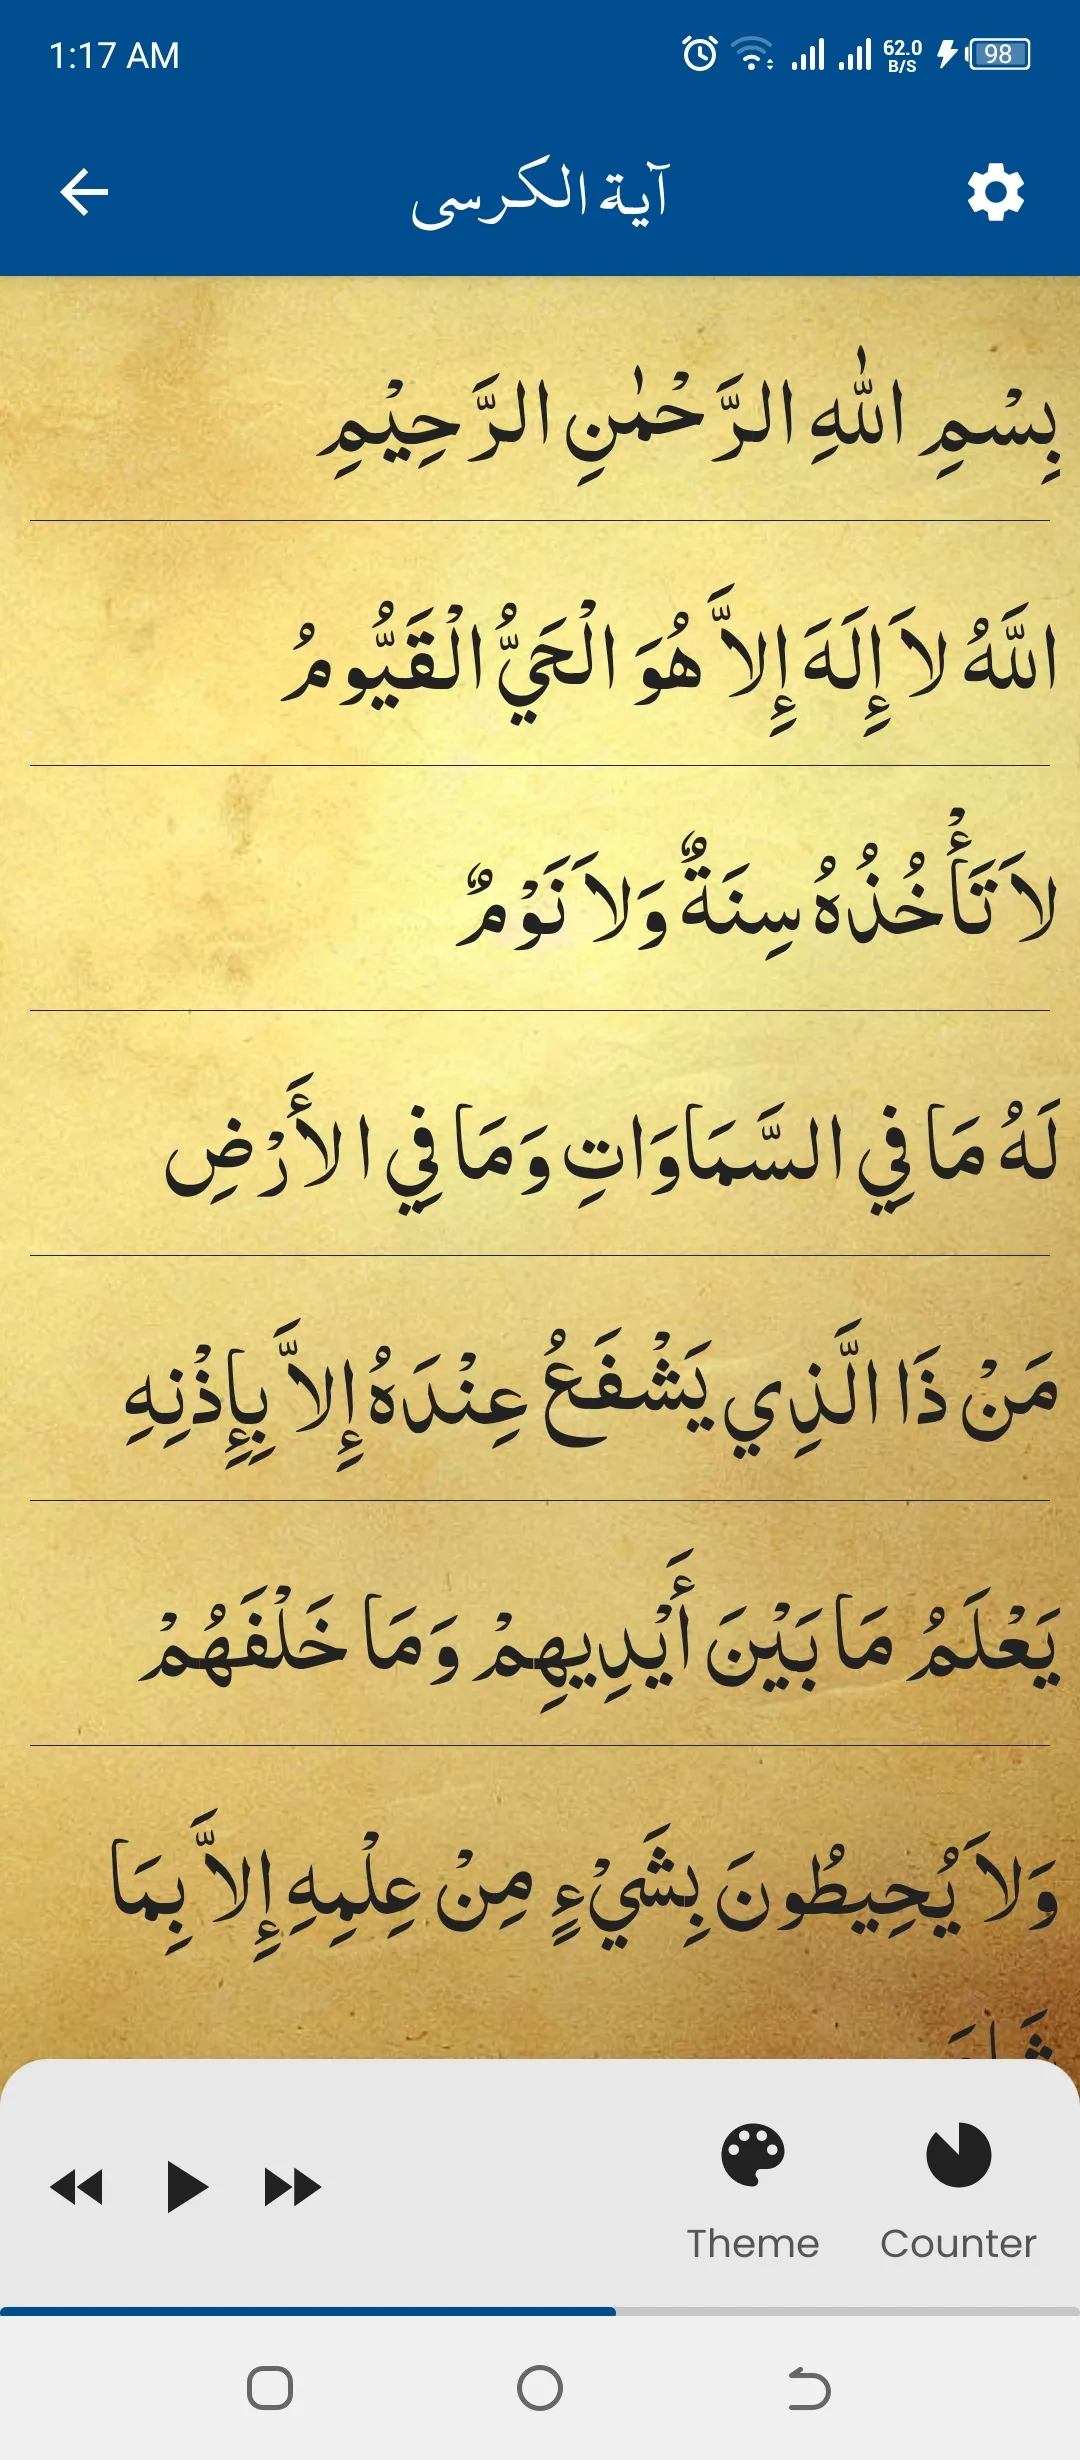 1:17 AM
62.0
B/S
98
آية الكرسى
بِسْمِ اللّٰهِ الرَّحْمٰنِ الرَّحِيْمِ
اللَّهُ لاَ إِلَهَ إِلاَّ هُوَ الْحَيُّ الْقَيُّومُ
لاَ تَأْخُذُهُ سِنَةٌ وَلاَ نَوْمٌ
لَهُ مَا فِي السَّمَاوَاتِ وَمَا فِي الأَرْضِ
مَنْ ذَا الَّذِي يَشْفَعُ عِنْدَهُ إِلاَّ بِإِذْنِهِ
يَعْلَمُ مَا بَيْنَ أَيْدِيهِمْ وَمَا خَلْفَهُمْ
وَلاَ يُحِيطُونَ بِشَيْءٍ مِنْ عِلْمِهِ إِلاَّ بِمَا
Theme
Counter